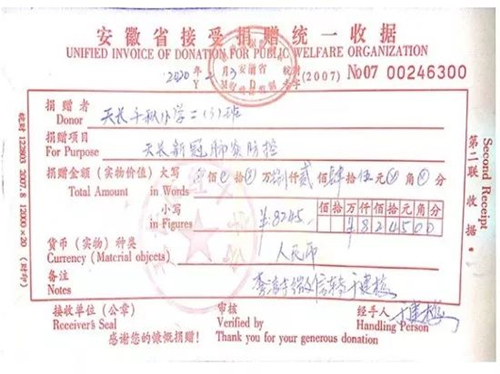 安徽省接受捐赠统一收据
UNIFIED INVOICE OF DONATION FOR PUBLIC WELFARE ORGANIZATION
2020年 月3 (2007) No07 00246300
Y M D
捐赠者 天长千秋小学二(3)班
Donor
捐赠项目 天长新冠肺炎防控
For Purpose
捐赠金额(实物价值)大写 佰 拾 万捌仟贰佰肆拾伍元 角 分
Total Amount in Words
小写 佰拾万仟佰拾元角分
in Figures ¥8245. ¥824500
货币(实物)种类 人民币
Currency (Material objects)
备注
Notes
接收单位(公章) 审核 经手人
Receiver's Seal Verified by Handling Person
感谢您的慷慨捐赠! Thank you for your generous donation
Second Receipt
第二联 收据